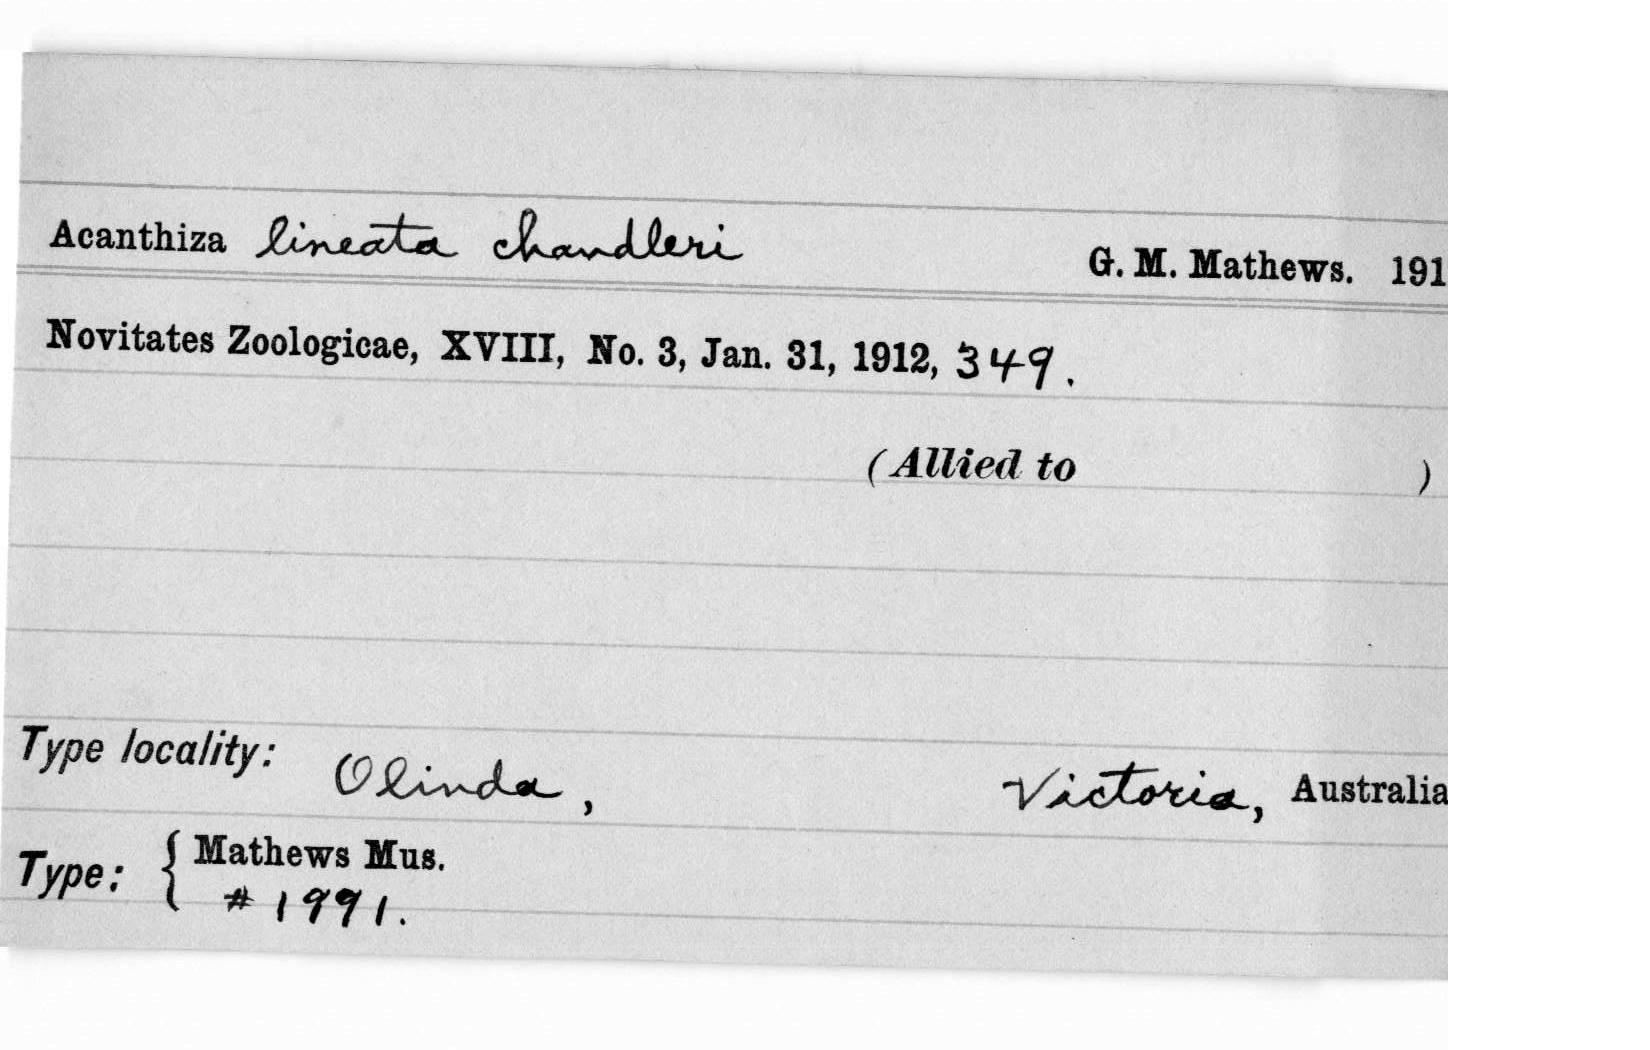 Acanthiza lineata chandleri G. M. Mathews. 191
Novitates Zoologicae, XVIII, No. 3, Jan. 31, 1912, 349.
(Allied to )
Type locality: Olinda, Victoria, Australia
Type: { Mathews Mus.
# 1991.